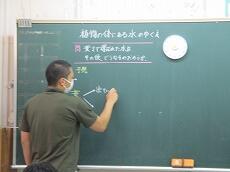 植物の体にある水のゆくえ
問 葉まで運ばれた水は
その後、どうなるのだろうか。
予想
葉